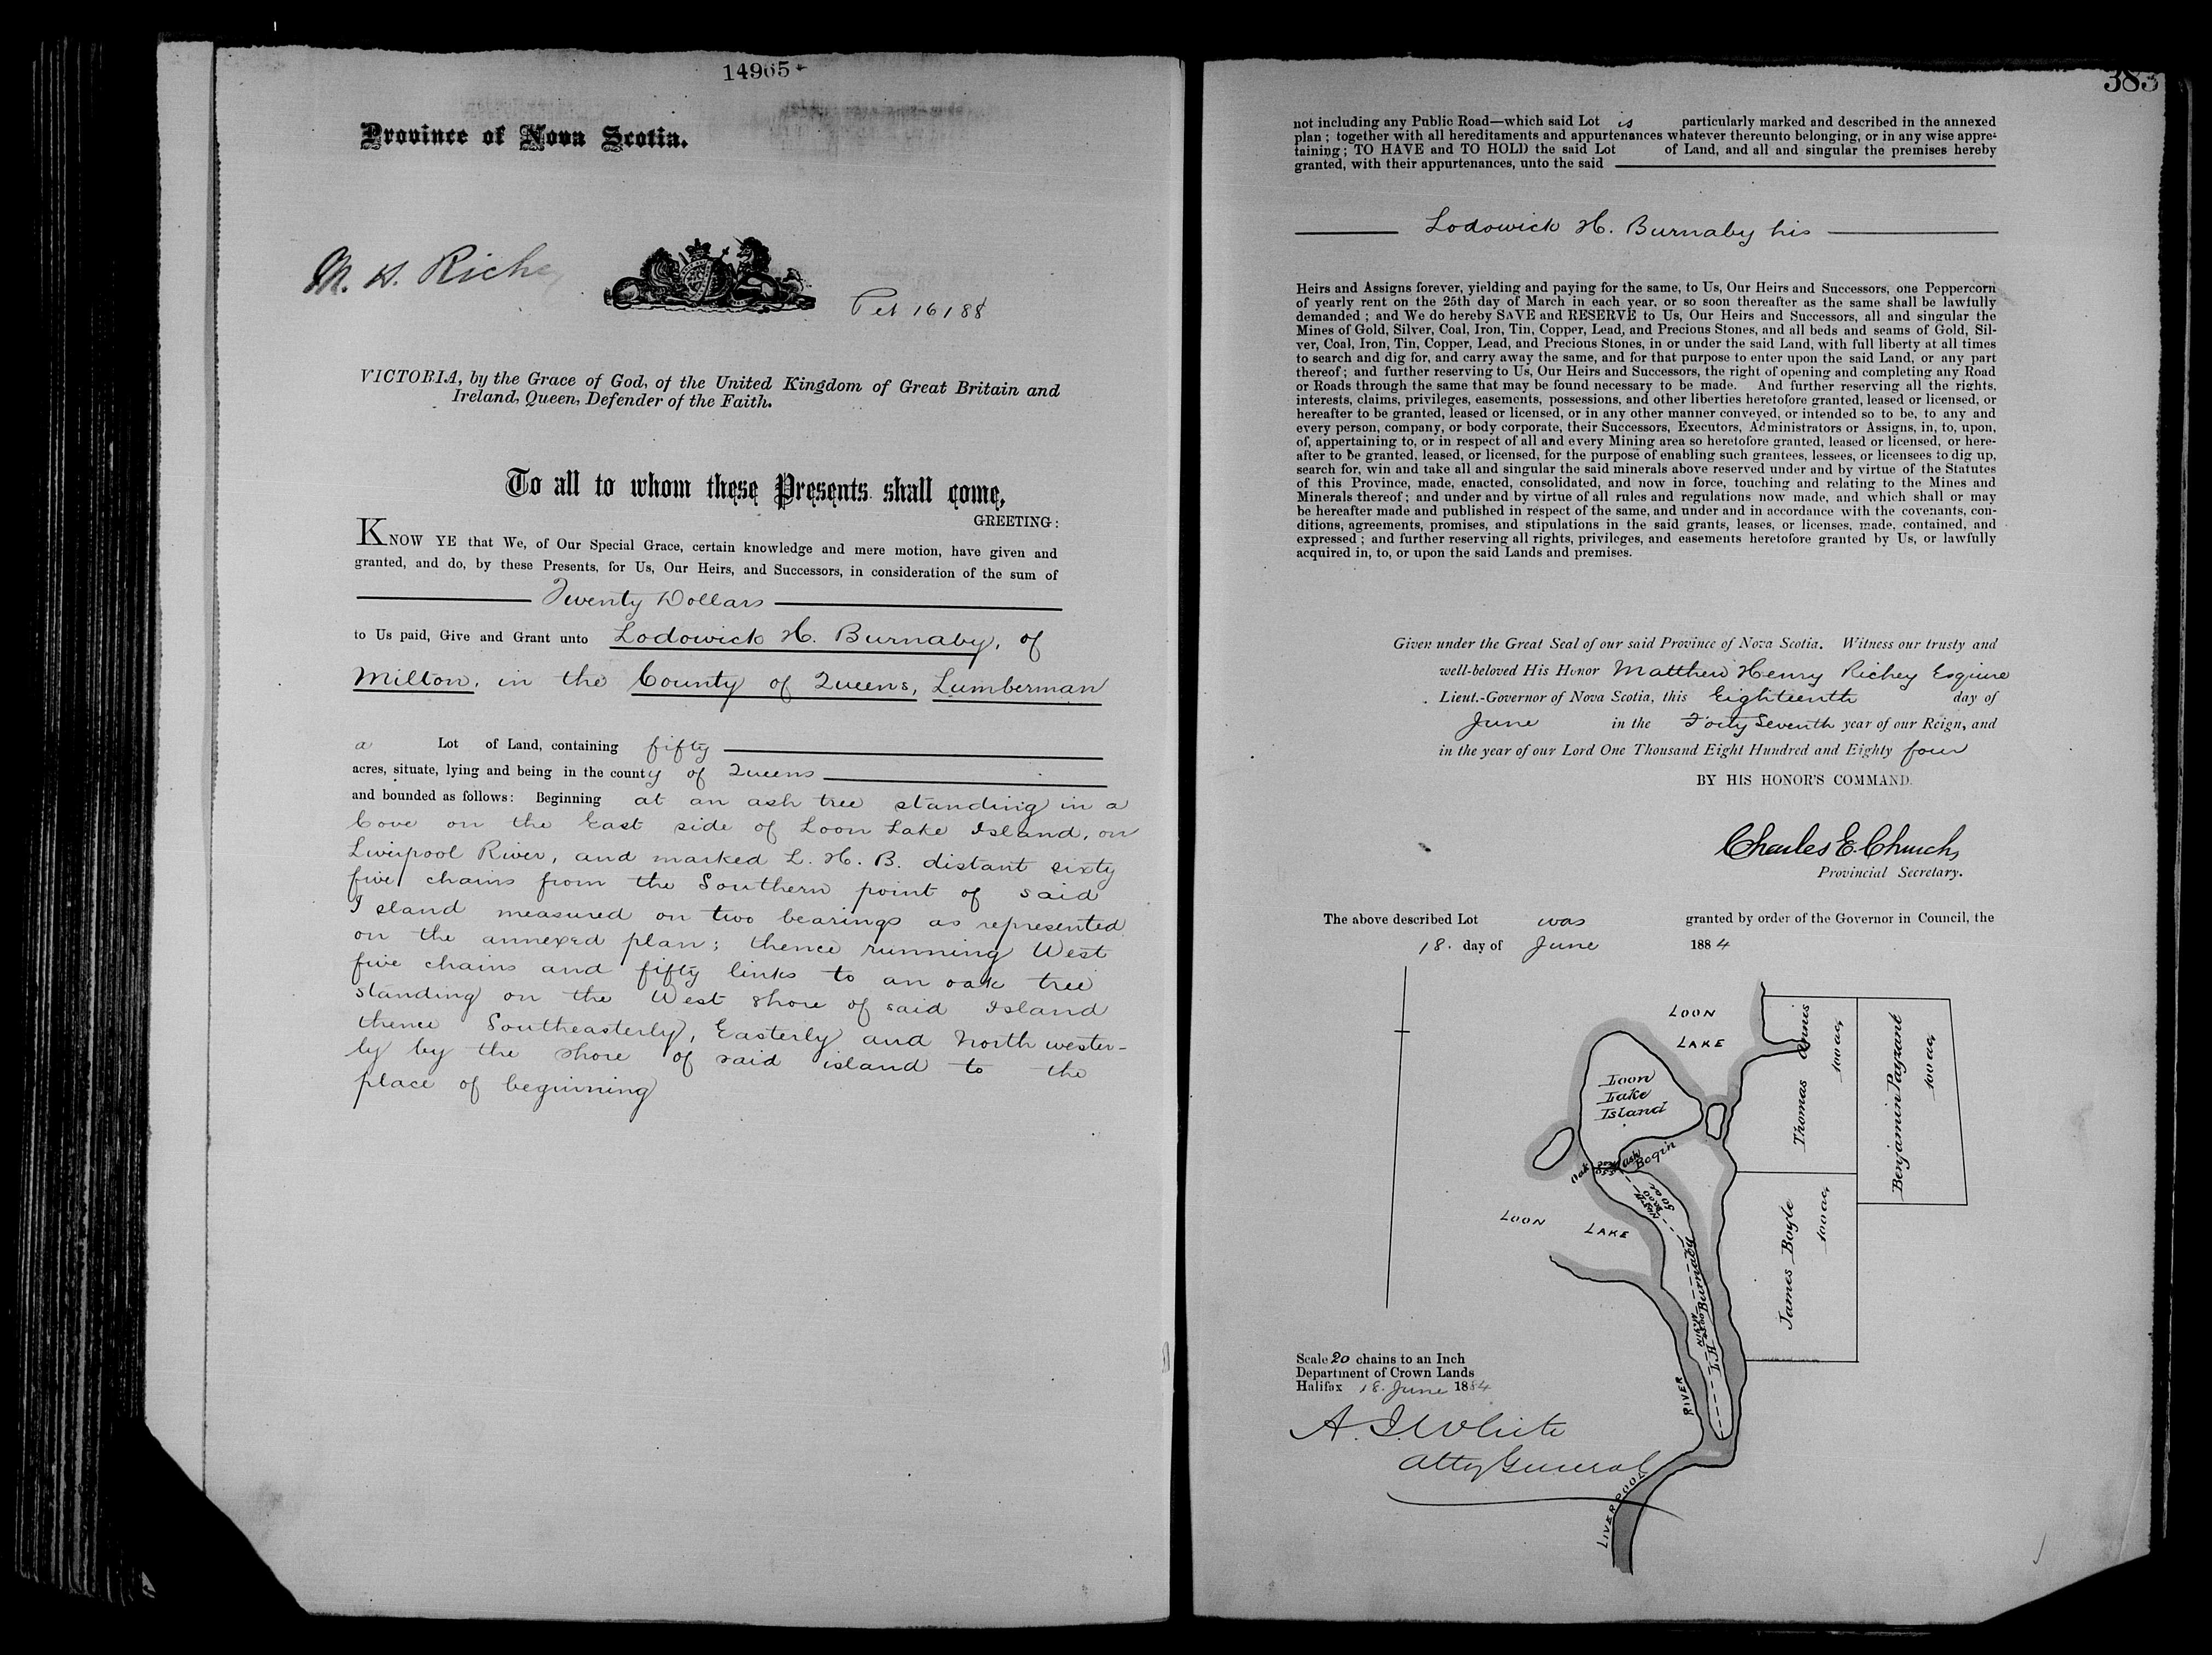 14965
Province of Nova Scotia.
M. H. Richey
Pet 16188
VICTORIA, by the Grace of God, of the United Kingdom of Great Britain and
Ireland, Queen, Defender of the Faith.
To all to whom these Presents shall come,
GREETING:
KNOW YE that We, of Our Special Grace, certain knowledge and mere motion, have given and
granted, and do, by these Presents, for Us, Our Heirs, and Successors, in consideration of the sum of
Twenty Dollars
to Us paid, Give and Grant unto Lodowick H. Burnaby, of
Milton, in the County of Queens, Lumberman
a Lot of Land, containing fifty
acres, situate, lying and being in the county of Queens
and bounded as follows: Beginning at an ash tree standing in a
Cove on the East side of Loon Lake Island, on
Liverpool River, and marked L. H. B. distant sixty
five chains from the Southern point of said
Island measured on two bearings as represented
on the annexed plan; thence running West
five chains and fifty links to an oak tree
standing on the West shore of said Island
thence Southeasterly, Easterly and North wester-
ly by the shore of said island to the
place of beginning
383
not including any Public Road—which said Lot is particularly marked and described in the annexed
plan; together with all hereditaments and appurtenances whatever thereunto belonging, or in any wise apper-
taining; TO HAVE and TO HOLD the said Lot of Land, and all and singular the premises hereby
granted, with their appurtenances, unto the said
Lodowick H. Burnaby his
Heirs and Assigns forever, yielding and paying for the same, to Us, Our Heirs and Successors, one Peppercorn
of yearly rent on the 25th day of March in each year, or so soon thereafter as the same shall be lawfully
demanded; and We do hereby SAVE and RESERVE to Us, Our Heirs and Successors, all and singular the
Mines of Gold, Silver, Coal, Iron, Tin, Copper, Lead, and Precious Stones, and all beds and seams of Gold, Sil-
ver, Coal, Iron, Tin, Copper, Lead, and Precious Stones, in or under the said Land, with full liberty at all times
to search and dig for, and carry away the same, and for that purpose to enter upon the said Land, or any part
thereof; and further reserving to Us, Our Heirs and Successors, the right of opening and completing any Road
or Roads through the same that may be found necessary to be made. And further reserving all the rights,
interests, claims, privileges, easements, possessions, and other liberties heretofore granted, leased or licensed, or
hereafter to be granted, leased or licensed, or in any other manner conveyed, or intended so to be, to any and
every person, company, or body corporate, their Successors, Executors, Administrators or Assigns, in, to, upon,
of, appertaining to, or in respect of all and every Mining area so heretofore granted, leased or licensed, or here-
after to be granted, leased, or licensed, for the purpose of enabling such grantees, lessees, or licensees to dig up,
search for, win and take all and singular the said minerals above reserved under and by virtue of the Statutes
of this Province, made, enacted, consolidated, and now in force, touching and relating to the Mines and
Minerals thereof; and under and by virtue of all rules and regulations now made, and which shall or may
be hereafter made and published in respect of the same, and under and in accordance with the covenants, con-
ditions, agreements, promises, and stipulations in the said grants, leases, or licenses, made, contained, and
expressed; and further reserving all rights, privileges, and easements heretofore granted by Us, or lawfully
acquired in, to, or upon the said Lands and premises.
Given under the Great Seal of our said Province of Nova Scotia. Witness our trusty and
well-beloved His Honor Matthew Henry Richey Esquire
Lieut.-Governor of Nova Scotia, this Eighteenth day of
June in the Forty Seventh year of our Reign, and
in the year of our Lord One Thousand Eight Hundred and Eighty four
BY HIS HONOR'S COMMAND.
Charles E. Church,
Provincial Secretary.
The above described Lot was granted by order of the Governor in Council, the
18. day of June 1884
LOON
LAKE
Loon
Lake
Island
Oak
Ash
Begin
50 ac
LOON LAKE
L. H. Burnaby
Thomas Annis
100 ac,
Benjamin Payzant
100 ac,
James Boyle
100 ac,
RIVER
LIVERPOOL
Scale 20 chains to an Inch
Department of Crown Lands
Halifax 18. June 1884
A. J. White
Atty General